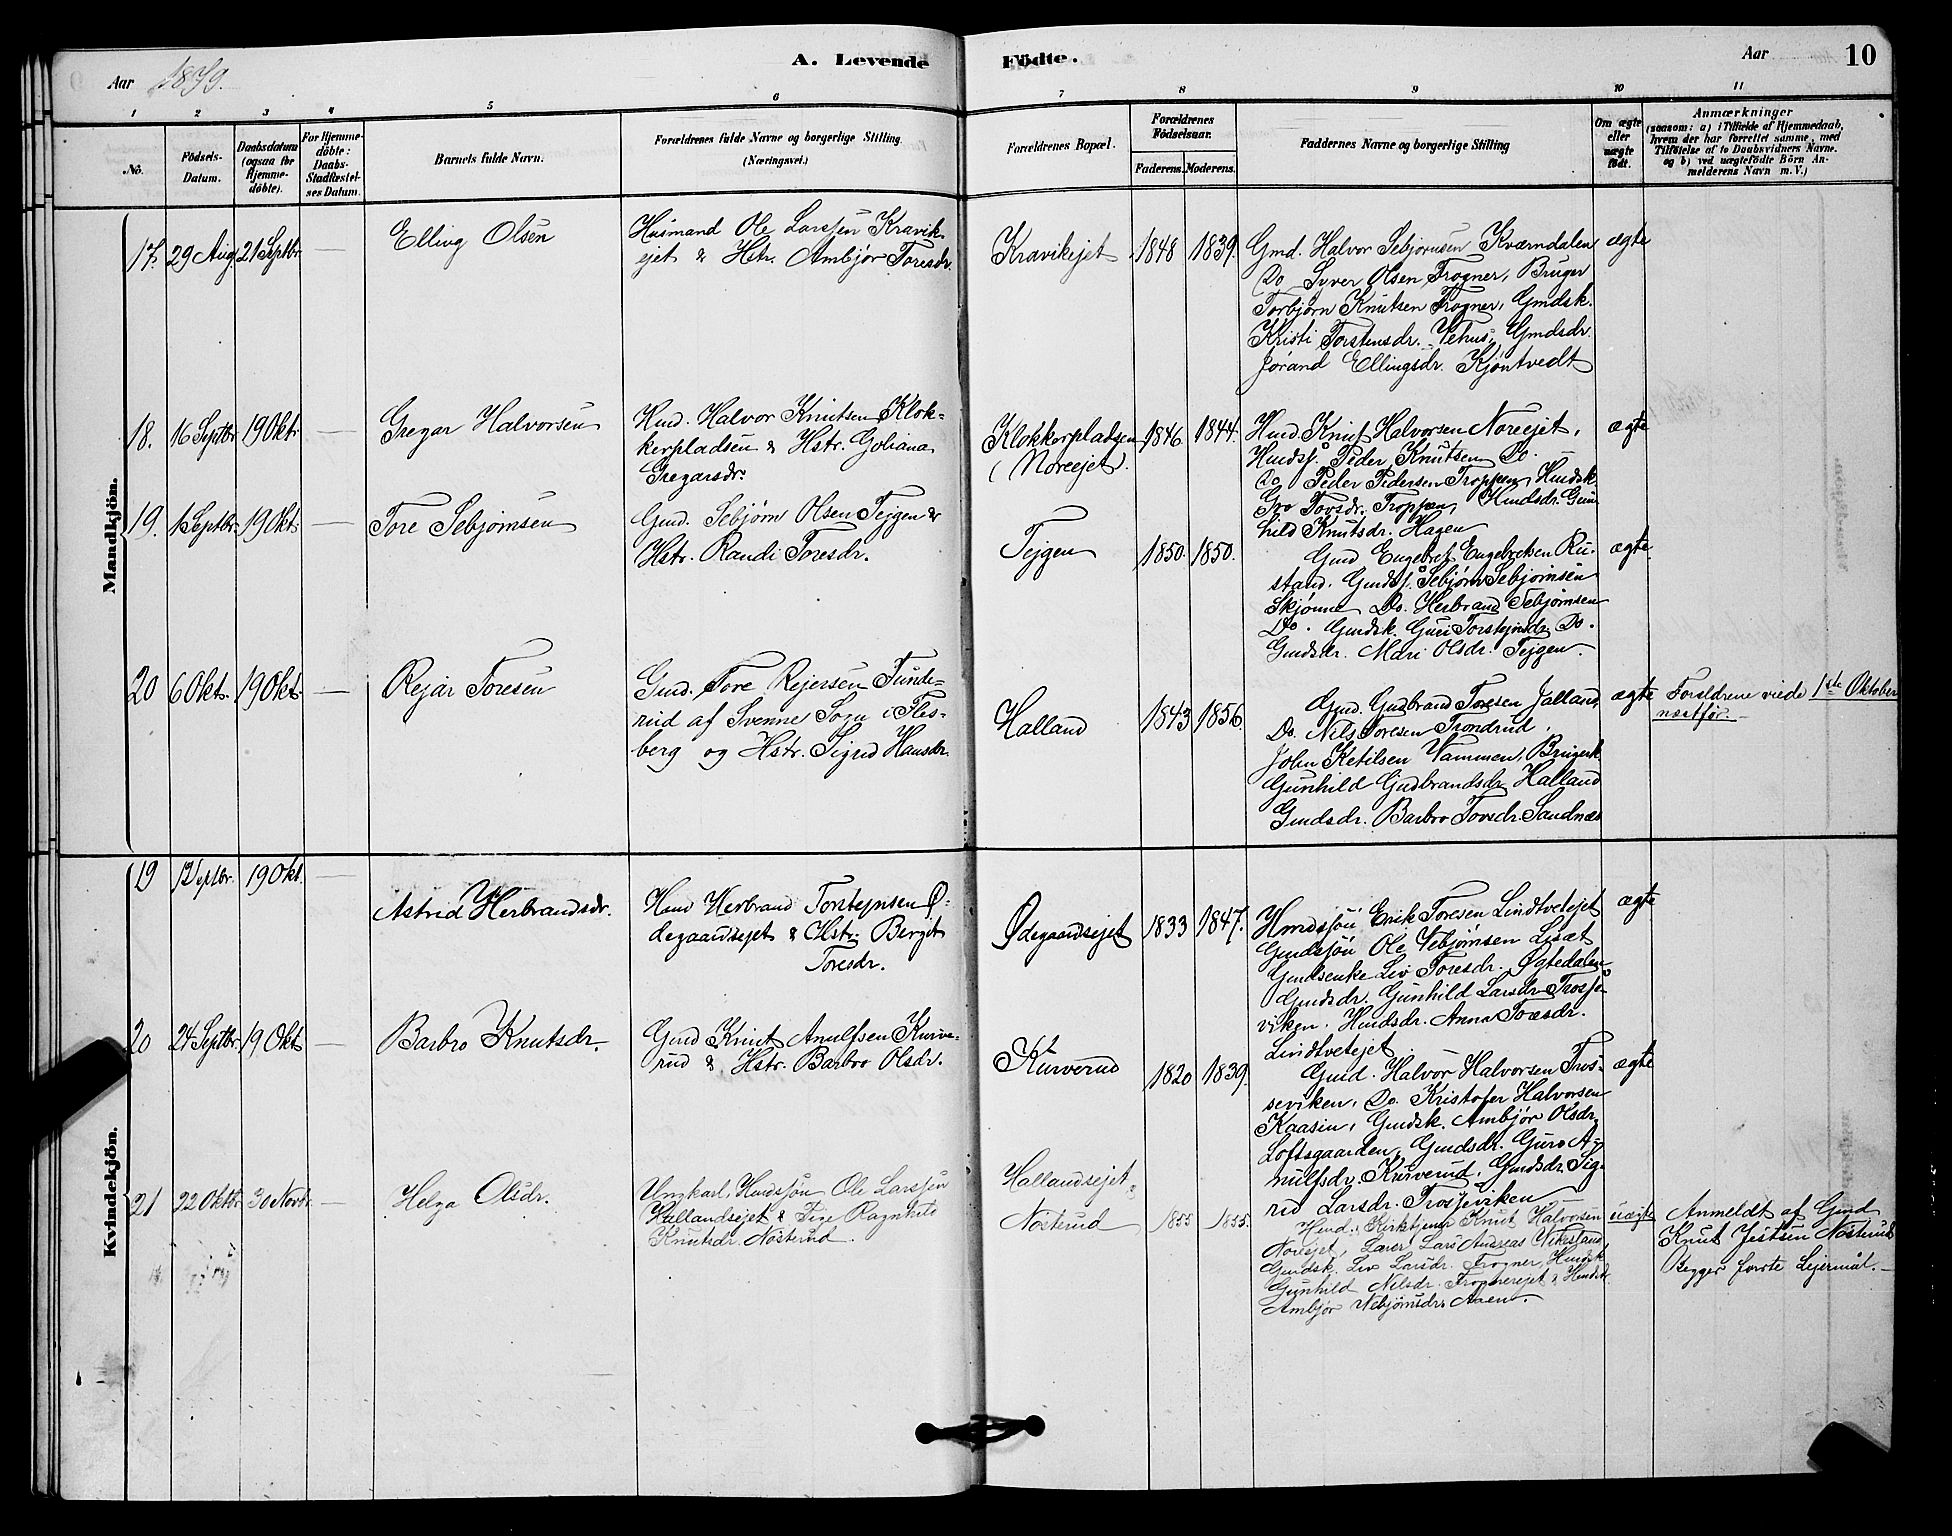 Aar 1879.
A. Levende Födte.
Aar
10
1 2 3 4 5 6 7 8 9 10 11
No.
Födsels-Datum.
Daabsdatum (ogsaa for Hjemme-döbte).
For Hjemme-döbte: Daabs-Stadfæstel-ses Datum.
Barnets fulde Navn.
Forældrenes fulde Navne og borgerlige Stilling (Næringsvei.)
Forældrenes Bopæl.
Forældrenes Födselsaar.
Faderens. Moderens.
Faddernes Navne og borgerlige Stilling
Om ægte eller uægte födt.
Anmærkninger
(saasom: a) i Tilfælde af Hjemmedaab,
hvem der har forrettet samme, med
Tilföielse af to Daabsvidners Navne.
og b) ved uægtefödte Börn An-
melderens Navn m. V.)
Mandkjön.
17. 29 Aug. 21 Septbr. — Elling Olsen
Husmand Ole Larssen Kravik-
ejet & Hstr. Ambjør Toresdr.
Kravikejet 1848 1839.
Gmd. Halvor Sebjørnsen Kværndalen
Do Syver Olsen Frogner, Bruger
Torbjørn Knutsen Frogner, Gmdsk.
Kristi Torstensdr. Vehus, Gmdsdr.
Jørand Ellingsdr. Kjøntvedt
ægte
18. 16 Septbr. 19 Okt. — Gregar Halvorsen
Hmd. Halvor Knutsen Klok-
kerpladsen & Hstr. Goliana
Gregarsdr.
Klokkerpladsen
(Noreejet).
1846. 1844.
Hmd. Knut Halvorsen Noreejet,
Hmdss. Peder Knutsen Do. —
Do Peder Pedersen Troppen, Hmdsk.
Gro Tovsdr. Troppen, Hmdsdr. Gun
hild Knutsdr. Hagen
ægte
19. 1 Septbr. 19 Okt. — Tore Sebjørnsen
Gmd. Sebjørn Olsen Tejgen &
Hstr. Randi Toresdr.
Tejgen 1850. 1850.
Gmd Engebret Engebretsen Ru-
stand. Gmdss. Sebjørn Sebjørnsen
Skjønne Do. Herbrand Sebjørnsen
Do. Gmdsk. Guri Torstejnsdr. Do.
Gmdsdr. Mari Olsdr. Tejgen.
ægte.
20 6 Okt. 19 Okt. — Rejar Toresen
Gmd. Tore Rejersen Funde-
rud af Svenne Sogn i Fles-
berg og Hstr. Sigrid Hansdr.
Halland 1843 1856.
Gmd. Gudbrand Toresen Jalland,
Do. Nils Toresen Trondrud,
John Ketilsen Vammen, Brugerk.
Gunhild Gudbrandsdr. Halland
Gmdsdr. Barbro Tovsdr. Sandnes
ægte
Forældrene viede 1ste Oktober
næstfør. —
Kvindekjön.
19 12 Septbr. 19 Okt. — Astrid Herbrandsdr.
Hmd Herbrand Torstejnsen Ø-
degaardsejet & Hstr. Bergit
Toresdr.
Ødegaardsejet 1833 1847.
Hmdssøn Erik Toresen Lindtvetejet
Gmdssøn Ole Vebjørnsen Lisæt
Gmdsenke Liv Toresdr. Øgtedalen
Gmdsdr. Gunhild Larsdr. Trosse-
viken. Hmdsdr. Anna Toresdr.
Lindtvetejet.
ægte
20 24 Septbr. 19 Okt — Barbro Knutsdr.
Gmd Knut Arnulfsen Kurve-
rud & Hstr. Barbro Olsdr.
Kurverud 1820 1839.
Gmd. Halvor Halvorsen Tros-
seviken, Do. Kristofer Halvorsen
Kaasin, Gmdsk. Ambjør Olsdr.
Loftsgaarden, Gmdsdr. Guro A-
nulfsdr. Kurverud, Gmdsdr. Sig-
rid Larsdr. Trosseviken
ægte
21 22 Oktbr 30 Novbr. — Helga Olsdr.
Ungkarl, Hmdssøn Ole Larssen
Hallandsejet & Pige Ragnhild
Knutsdr. Nøsterud.
Hallandsejet
Nøsterud
1855 1855.
Hmd. Kirktjener Knut Halvorsen
Noreejet, Lærer Lars Andreas Vikesland
Gmdsk. Liv Larsdr. Frogner, Hmdsk.
Gunhild Nilsdr. Frognerejet & Hmdsdr
Ambjør Vebjørnsdr. Aaen.
uægte
Anmeldt af Gmd
Knut Jestsen Nøsterud
Begges første Lejermål. —